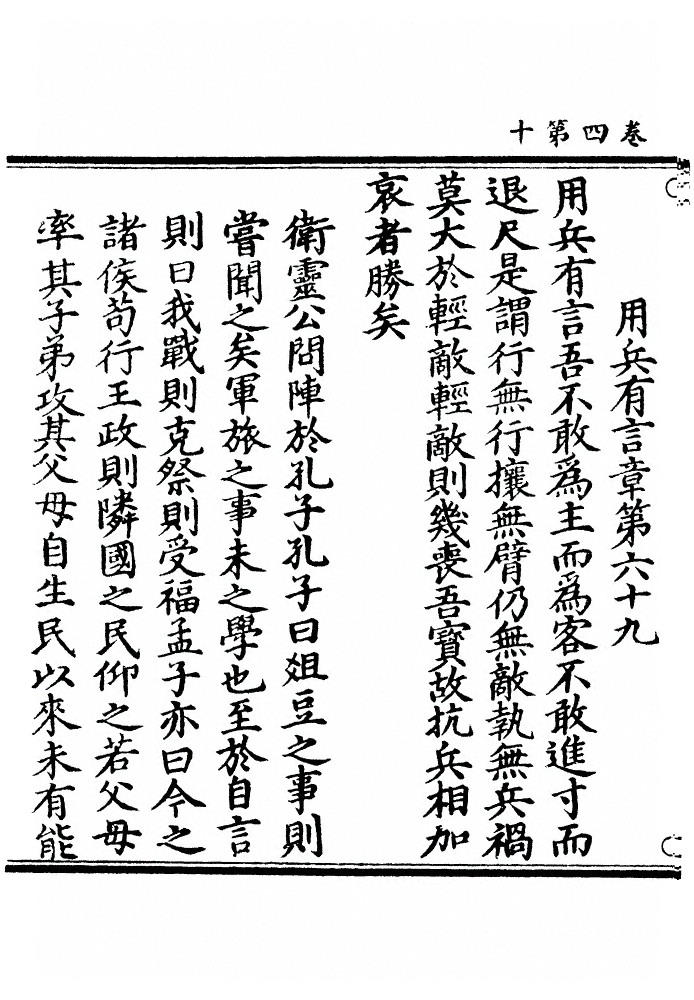 卷四第十
用兵有言章第六十九
用兵有言吾不敢為主而為客不敢進寸而
退尺是謂行無行攘無臂仍無敵執無兵禍
莫大於輕敵輕敵則幾喪吾寶故抗兵相加
哀者勝矣
衛靈公問陣於孔子孔子曰俎豆之事則
嘗聞之矣軍旅之事未之學也至於自言
則曰我戰則克祭則受福孟子亦曰今之
諸侯苟行王政則隣國之民仰之若父母
率其子弟攻其父母自生民以來未有能